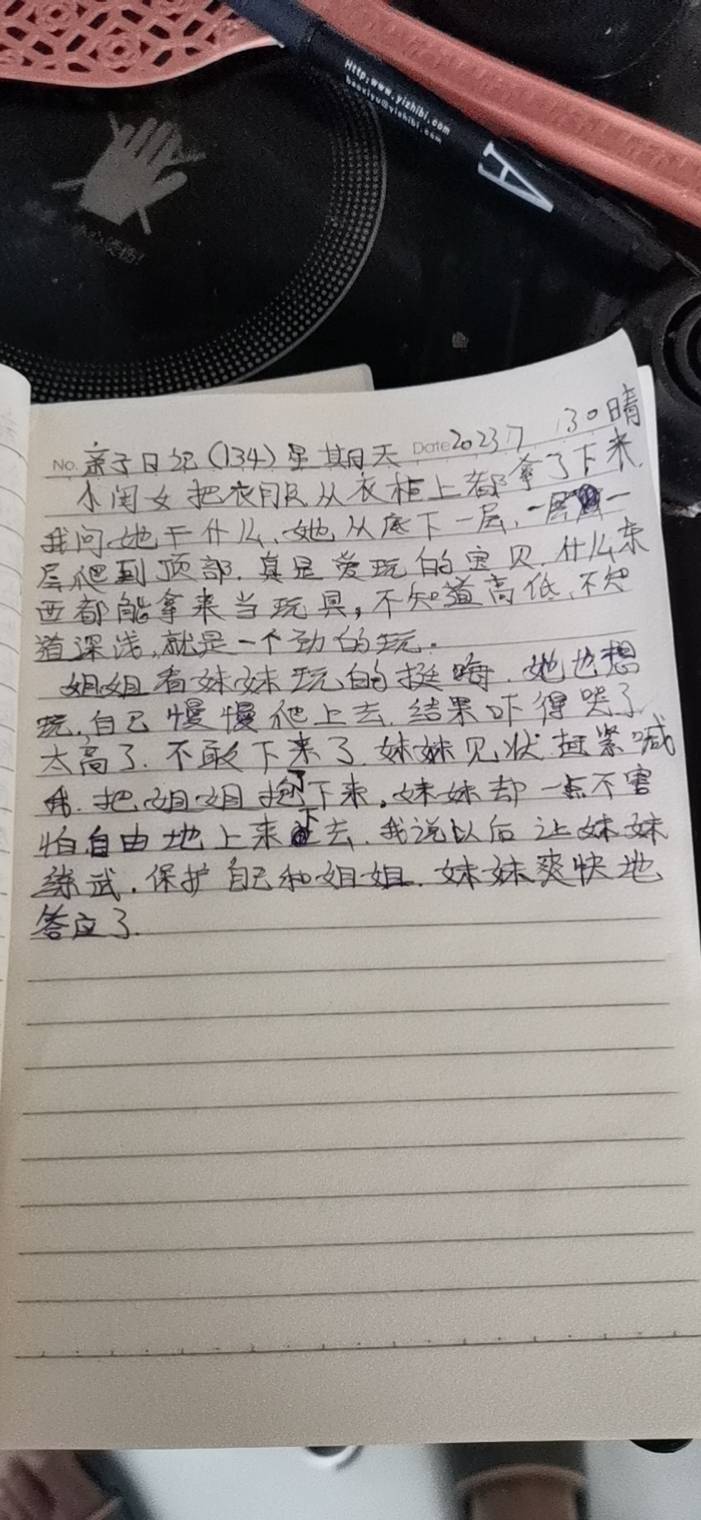 Http:www.yizhibi.com
baoxiyu@yizhibi.com
A
小心烫伤!
No. 亲子日记(134)星期天 Date 2023 7 30晴
小闺女把衣服从衣柜上都拿了下来.
我问她干什么,她从底下一层,一层一
层爬到顶部.真是爱玩的宝贝.什么东
西都能拿来当玩具,不知道高低,不知
道深浅,就是一个劲的玩.
姐姐看妹妹玩的挺嗨.她也想
玩,自己慢慢爬上去.结果吓得哭了
太高了.不敢下来了.妹妹见状赶紧喊
我.把姐姐抱了下来,妹妹却一点不害
怕自由地上来下去.我说以后让妹妹
练武,保护自己和姐姐.妹妹爽快地
答应了.